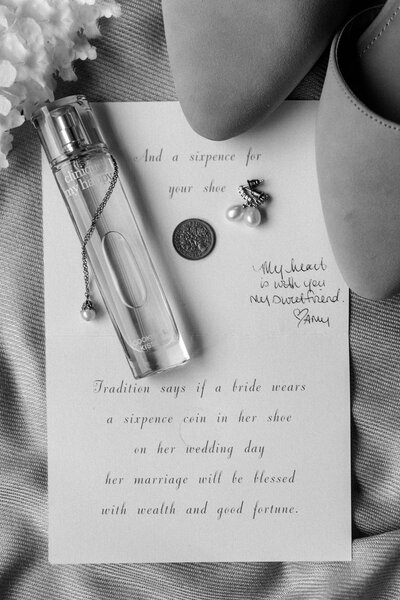 And a sixpence for
your shoe
clinique
my happy
My heart
is with you
my sweet friend.
♡ Amy
Tradition says if a bride wears
a sixpence coin in her shoe
on her wedding day
her marriage will be blessed
with wealth and good fortune.